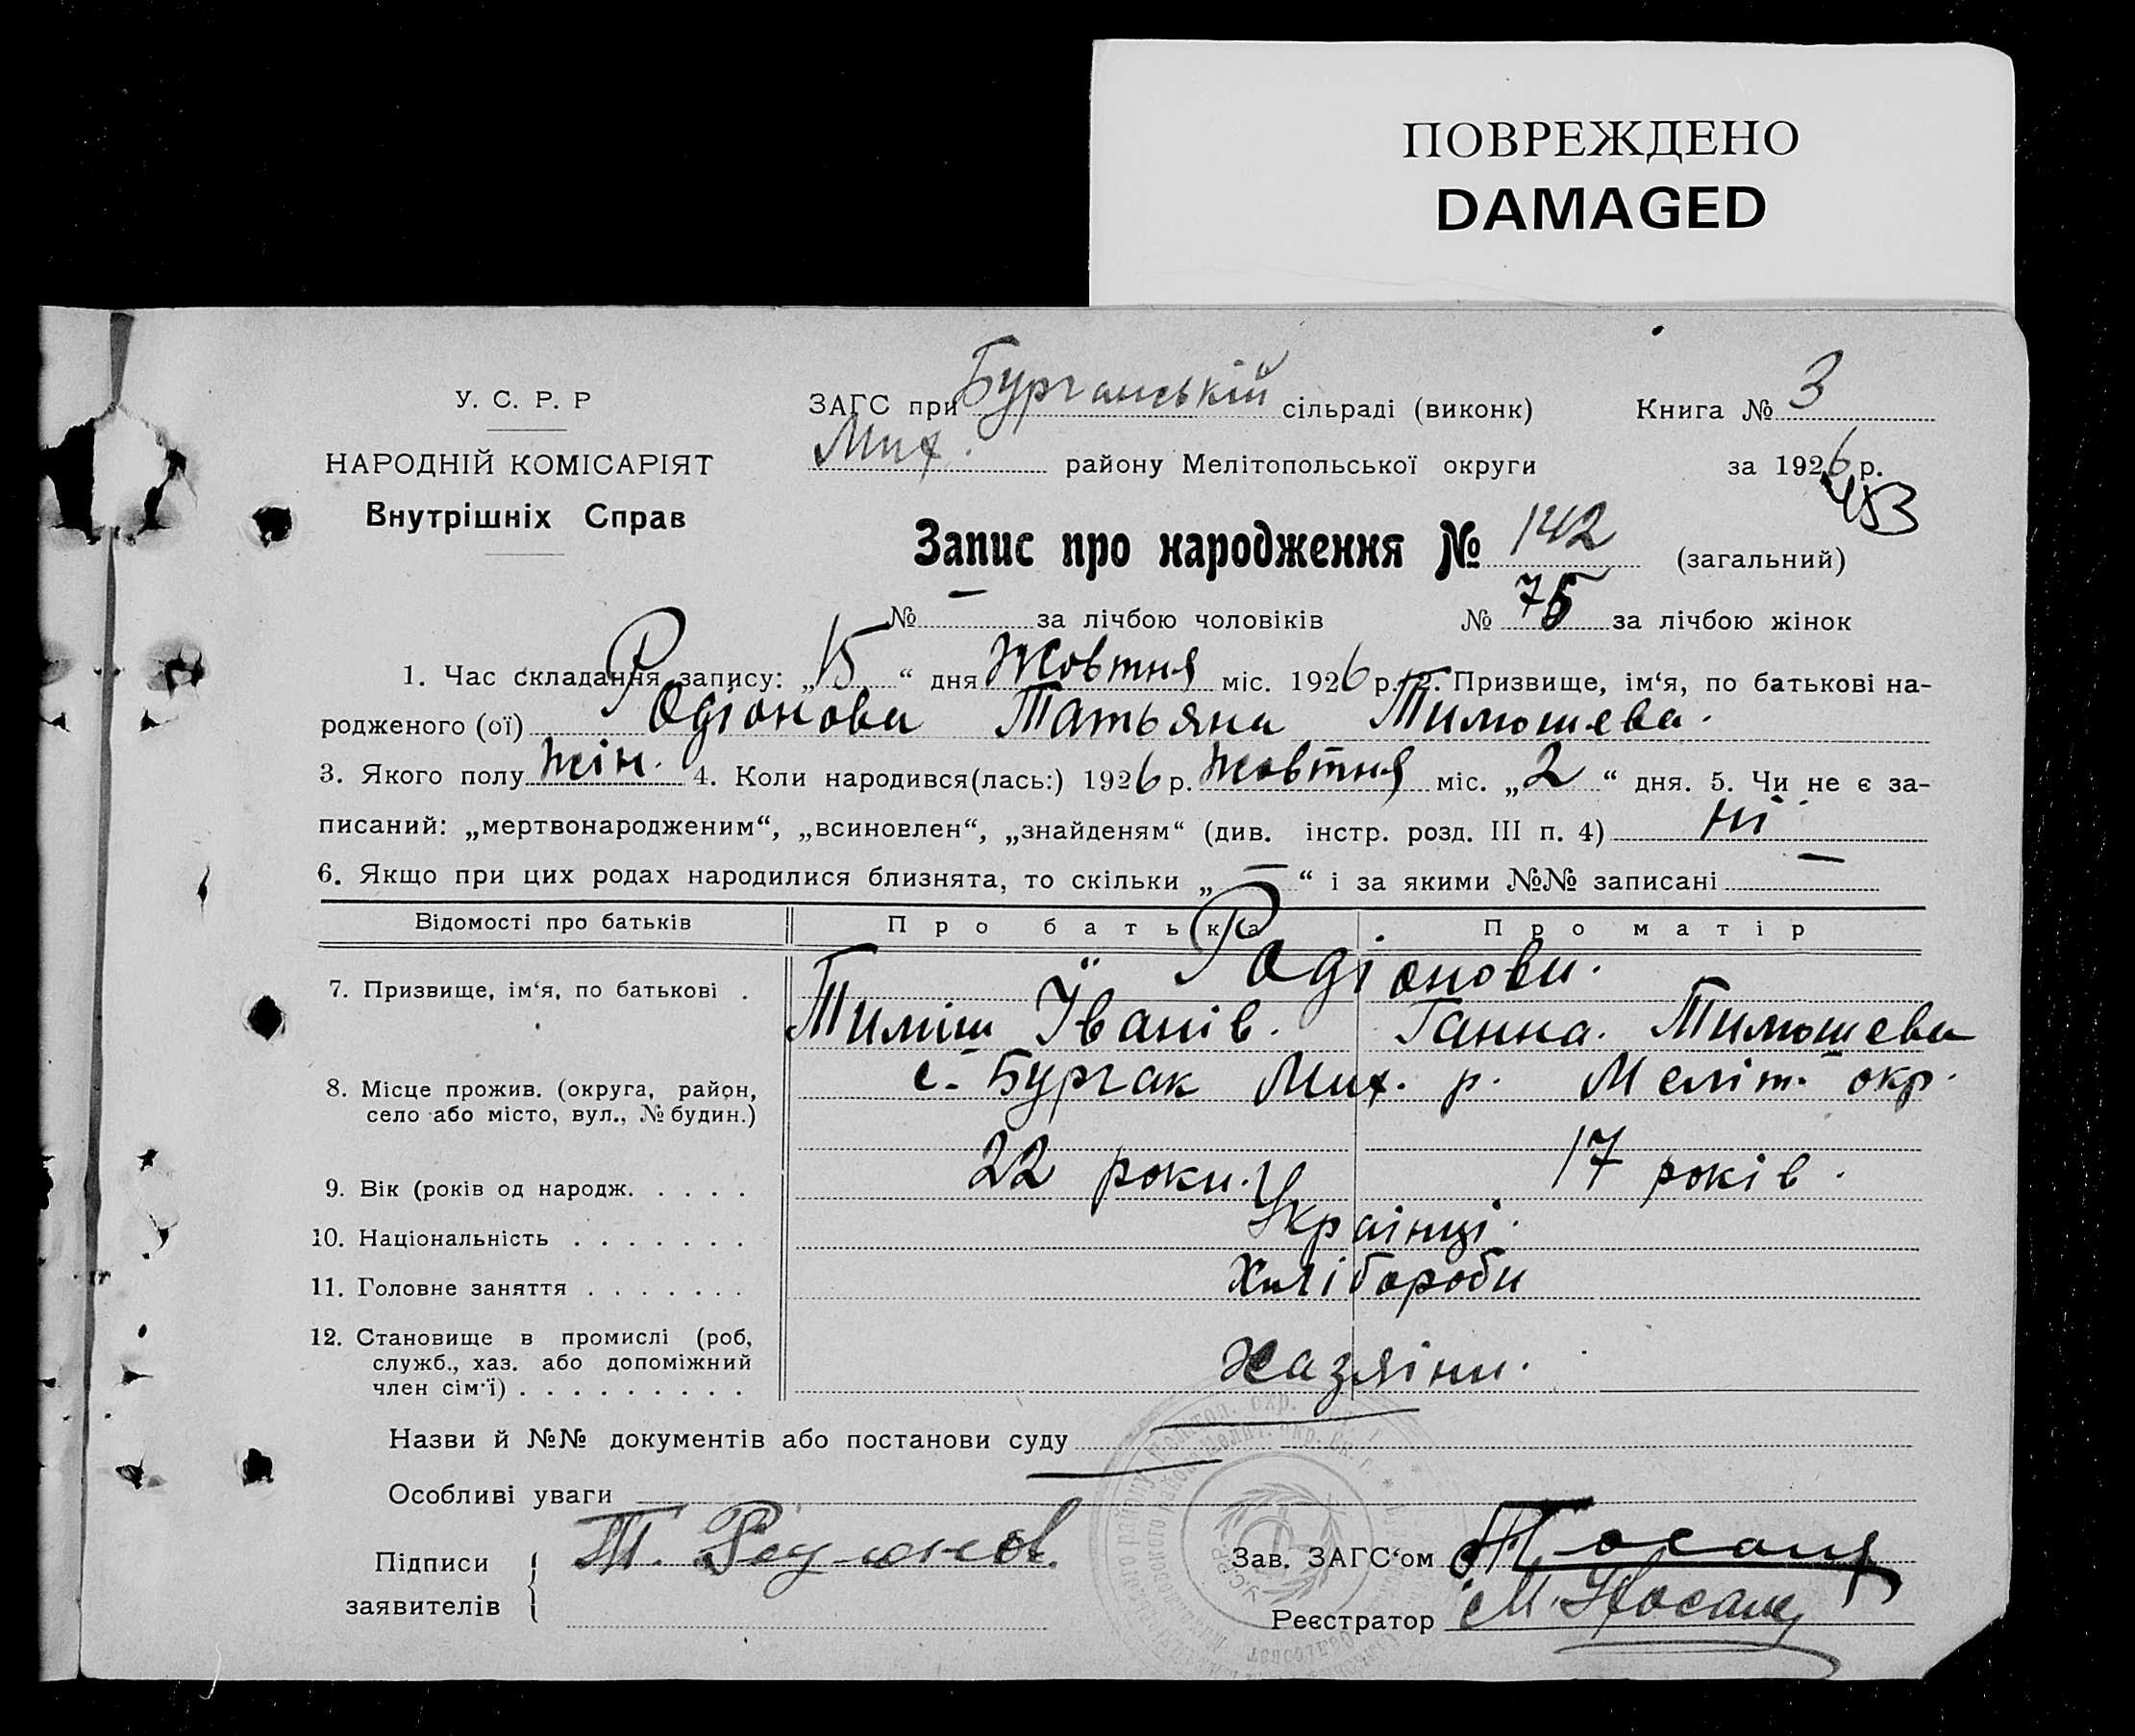 ПОВРЕЖДЕНО
DAMAGED
У. С. Р. Р
НАРОДНІЙ КОМІСАРІЯТ
Внутрішніх Справ
ЗАГС при Бурчанській сільраді (виконк) Книга № 3
Мих. району Мелітопольської округи за 1926 р.
453
Запис про народження № 142 (загальний)
№ — за лічбою чоловіків № 75 за лічбою жінок
1. Час складання запису: „15“ дня Жовтня міс. 1926 р. 2. Призвище, ім‘я, по батькові на-
родженого (ої) Родіонова Татьяна Тимошева.
3. Якого полу жін. 4. Коли народився(лась:) 1926 р. жовтня міс. „2“ дня. 5. Чи не є за-
писаний: „мертвонародженим“, „всиновлен“, „знайденям“ (див. інстр. розд. III п. 4) ні
6. Якщо при цих родах народилися близнята, то скільки „—“ і за якими №№ записані —
Відомості про батьків Про батька Про матір
7. Призвище, ім‘я, по батькові . Родіонови.
Тиміш Їванів. Ганна. Тимошева
8. Місце прожив. (округа, район, с. Бурчак Мих. р. Меліт. окр.
село або місто, вул., № будин.)
9. Вік (років од народж. . . . . 22 роки. 17 років.
10. Національність . . . . . . . Українці.
11. Головне заняття . . . . . . . Хлібороби
12. Становище в промислі (роб,
служб., хаз. або допоміжний Хазяіни.
член сім‘ї) . . . . . . . . .
Назви й №№ документів або постанови суду —
Особливі уваги —
Підписи Т. Родионов. Зав. ЗАГС‘ом
заявителів Реєстратор М. Носащ